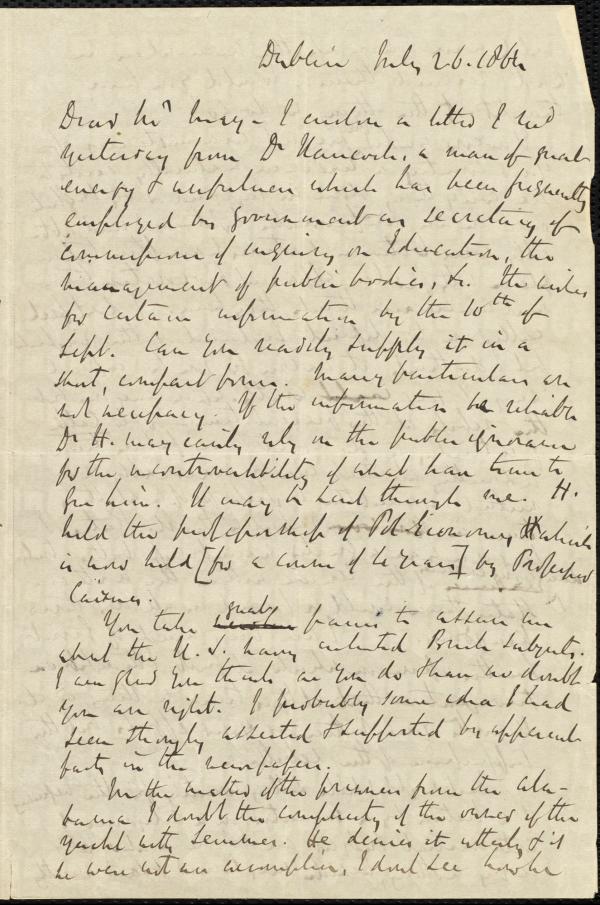 Dublin July 26. 1864
Dear Mr May - I enclose a letter I recd
yesterday from Dr Hancock, a man of great
energy & usefulness which has been frequently
employed by government as secretary of
commissions of inquiry on Education, the
management of public bodies, &c. He wishes
for certain information by the 10th of
Sept. Can you readily supply it in a
short, compact form. Many particulars are
not necessary. If the information be reliable
Dr H. may easily rely on the public ignorance
for the incontrovertibility of what have time to
give him. It may be sent through me. H.
held the professorship of Pol Economy which
is now held [for a course of 4 years] by Professor
Cairnes.
You take great pains to assure me
about the U. S. having enlisted British subjects.
I am glad you think as you do & have no doubt
you are right. I probably some idea I had
seen strongly asserted & supported by apparent
facts in the newspapers.
In the matter of the prisoners from the Ala-
bama I doubt the complicity of the owner of the
yacht with Semmes. He denies it utterly & if
he were not an accomplice, I dont see how he